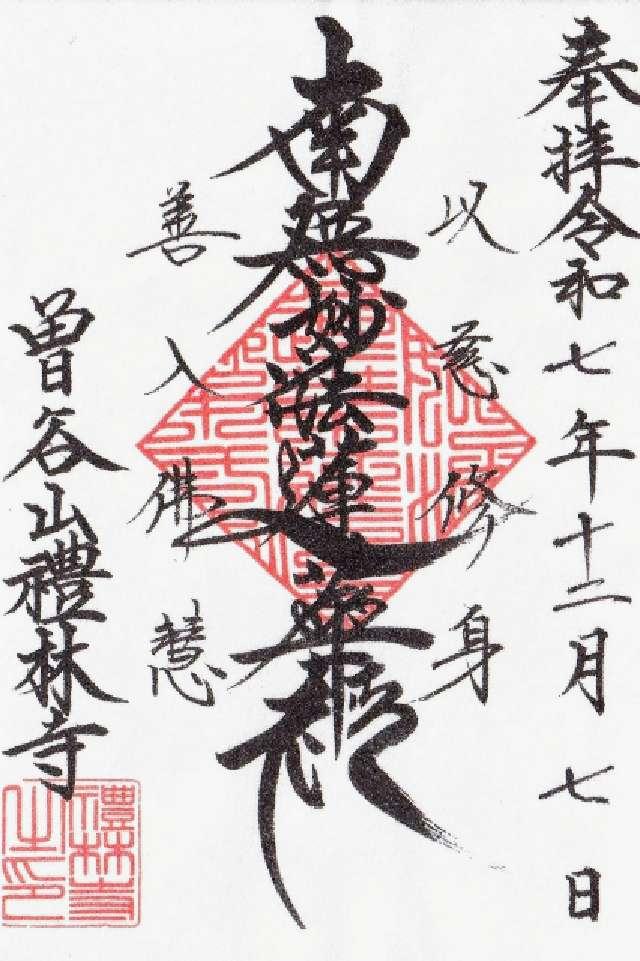 奉拝令和七年十二月七日
以慈修身
南無妙法蓮華経
善入佛慧
曽谷山禮林寺
禮林寺之印